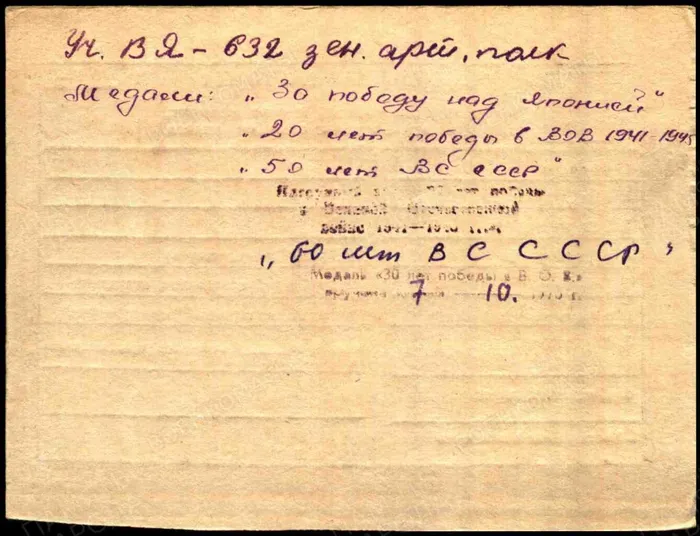 Уч. В Я - 632 зен. арт. полк
Медали: „За победу над Японией"
„20 лет победы в ВОВ 1941-1945
„50 лет ВС СССР"
лет победы
в Великой Отечественной
войне 1941—1945 г.г.
„60 лет ВС СССР"
Медаль «30 лет победы в В. О. В.»
вручена 7 10.